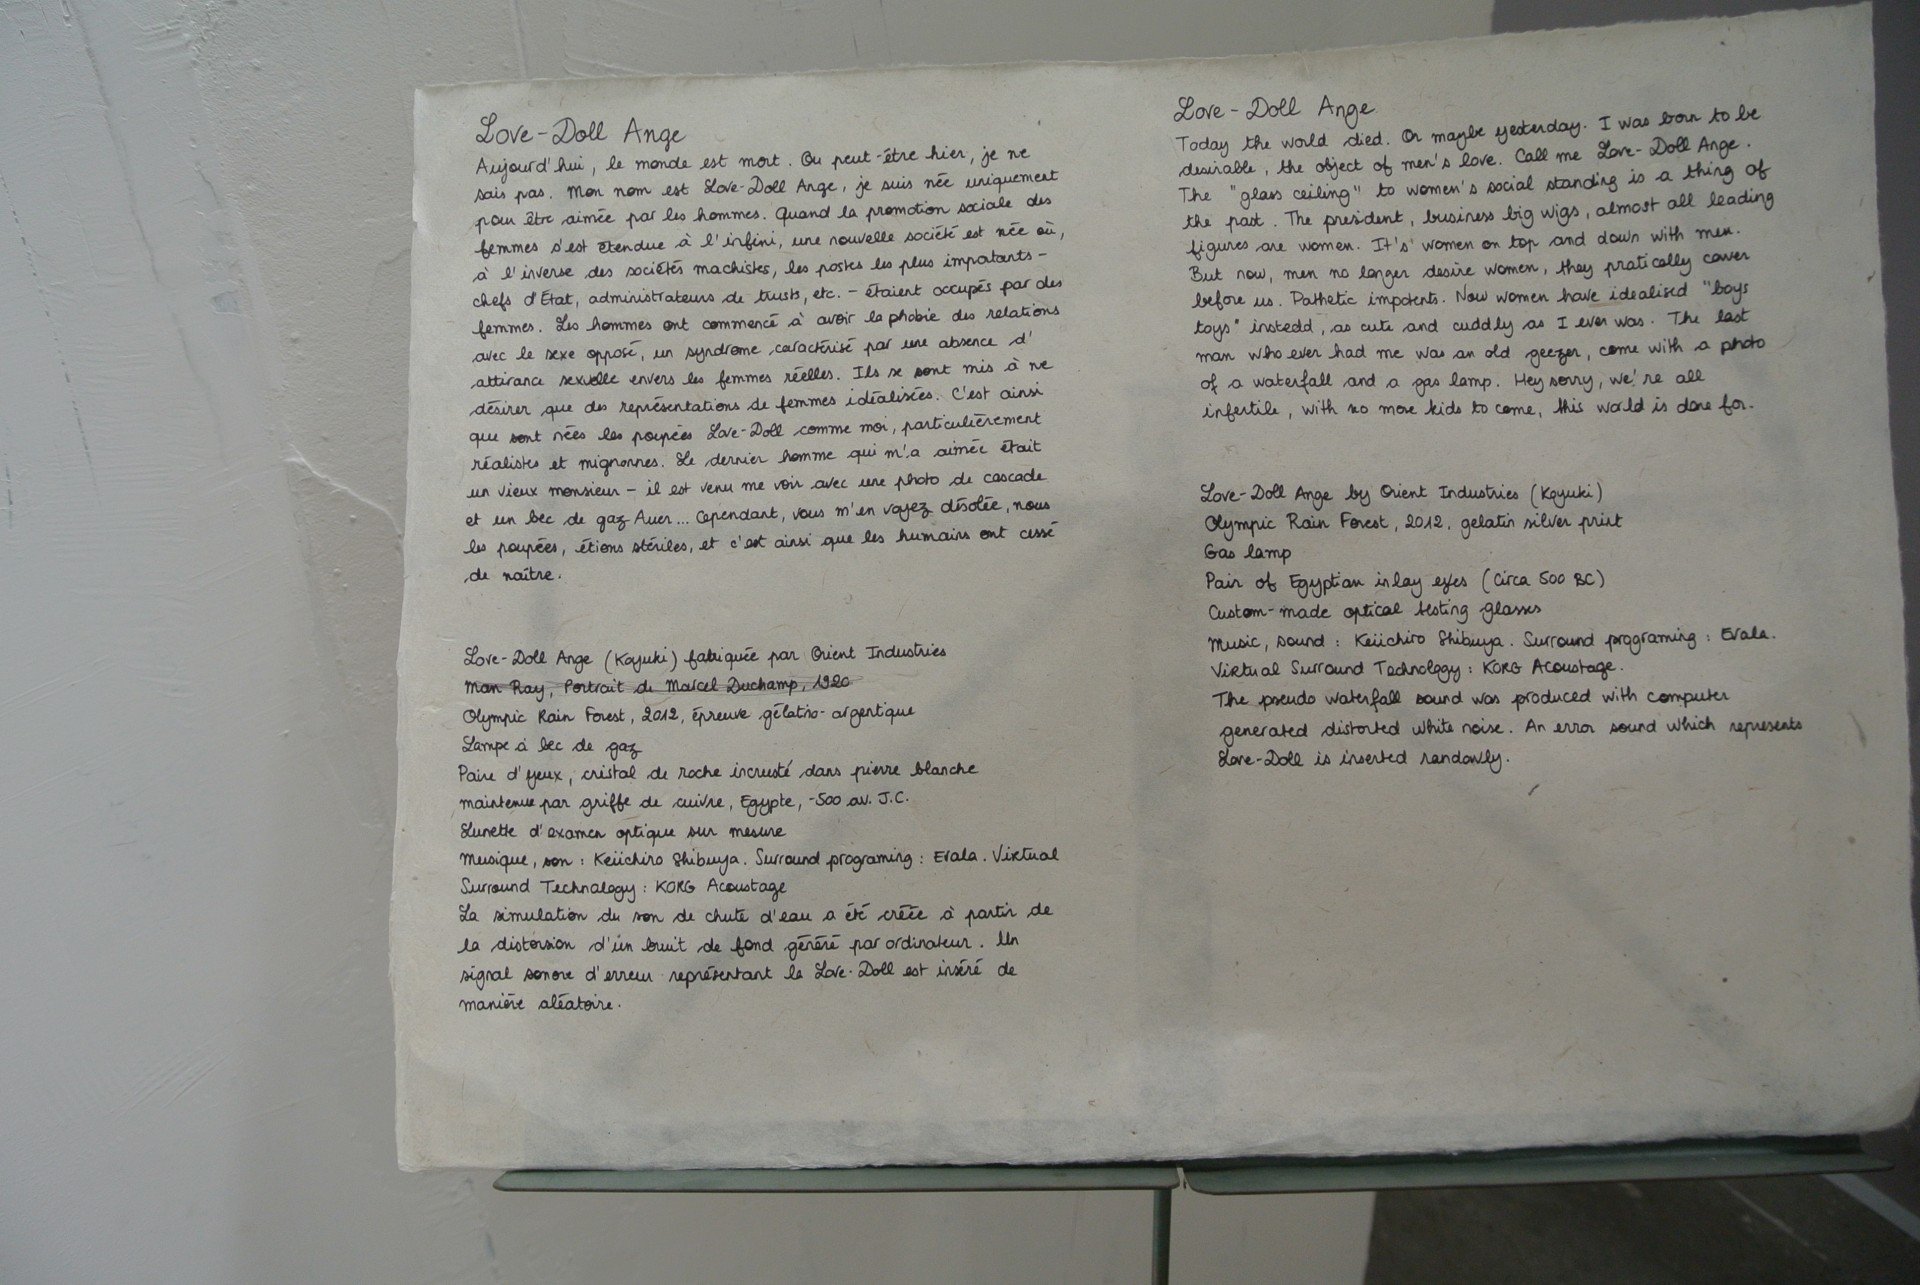 Love-Doll Ange
Aujourd'hui, le monde est mort. Ou peut-être hier, je ne
sais pas. Mon nom est Love-Doll Ange, je suis née uniquement
pour être aimée par les hommes. Quand la promotion sociale des
femmes s'est étendue à l'infini, une nouvelle société est née où,
à l'inverse des sociétés machistes, les postes les plus importants -
chefs d'État, administrateurs de trusts, etc. - étaient occupés par des
femmes. Les hommes ont commencé à avoir la phobie des relations
avec le sexe opposé, un syndrome caractérisé par une absence d'
attirance sexuelle envers les femmes réelles. Ils se sont mis à ne
désirer que des représentations de femmes idéalisées. C'est ainsi
que sont nées les poupées Love-Doll comme moi, particulièrement
réalistes et mignonnes. Le dernier homme qui m'a aimée était
un vieux monsieur - il est venu me voir avec une photo de cascade
et un bec de gaz Auer... Cependant, vous m'en voyez désolée, nous
les poupées, étions stériles, et c'est ainsi que les humains ont cessé
de naître.
Love-Doll Ange (Koyuki) fabriquée par Orient Industries
Man Ray, Portrait de Marcel Duchamp, 1920
Olympic Rain Forest, 2012, épreuve gélatino-argentique
Lampe à bec de gaz
Paire d'yeux, cristal de roche incrusté dans pierre blanche
maintenue par griffe de cuivre, Egypte, -500 av. J.C.
Lunette d'examen optique sur mesure
Musique, son : Keiichiro Shibuya. Surround programing : Evala. Virtual
Surround Technology : KORG Acoustage
La simulation du son de chute d'eau a été créée à partir de
la distorsion d'un bruit de fond généré par ordinateur. Un
signal sonore d'erreur représentant la Love-Doll est inséré de
manière aléatoire.
Love-Doll Ange
Today the world died. Or maybe yesterday. I was born to be
desirable, the object of men's love. Call me Love-Doll Ange.
The "glass ceiling" to women's social standing is a thing of
the past. The president, business big wigs, almost all leading
figures are women. It's women on top and down with men.
But now, men no longer desire women, they pratically cower
before us. Pathetic impotents. Now women have idealised "boys
toys" instedd, as cute and cuddly as I ever was. The last
man who ever had me was an old geezer, come with a photo
of a waterfall and a gas lamp. Hey sorry, we're all
infertile, with no more kids to come, this world is done for.
Love-Doll Ange by Orient Industries (Koyuki)
Olympic Rain Forest, 2012, gelatin silver print
Gas lamp
Pair of Egyptian inlay eyes (Circa 500 BC)
Custom-made optical testing glasses
Music, sound : Keiichiro Shibuya. Surround programing : Evala.
Virtual Surround Technology : KORG Acoustage.
The pseudo waterfall sound was produced with computer
generated distorted white noise. An error sound which represents
Love-Doll is inserted randowly.